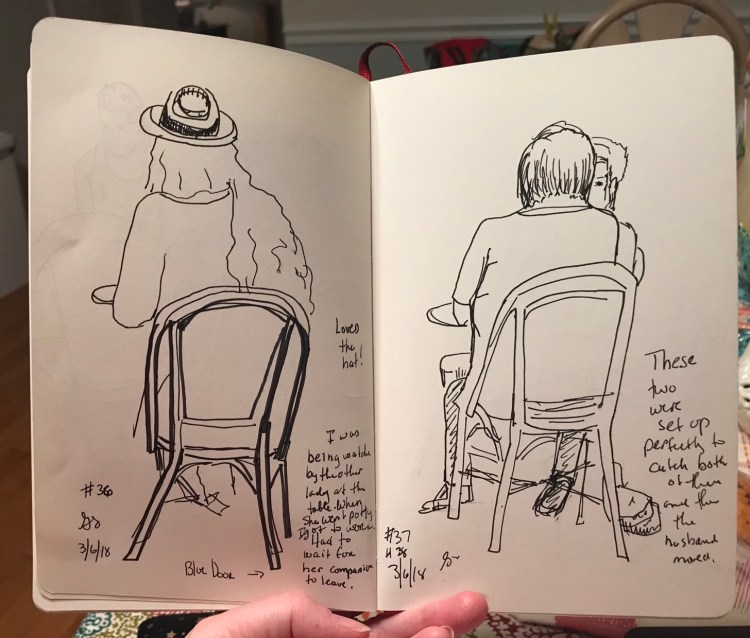 Loved
the
hat!
I was
being watched
by the other
lady at the
table. When
she went potty
I got to work
Had to
wait for
her companion
to leave.
#36
3/6/18
Blue Door →
These
two
were
set up
perfectly to
catch both
of them
and then
the
husband
moved.
#37
# 38
3/6/18